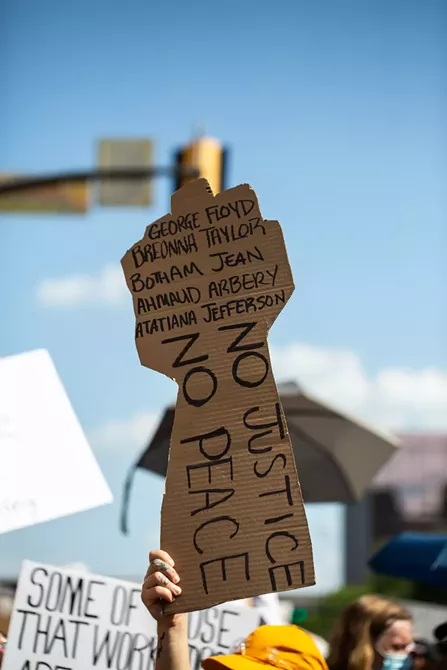 GEORGE FLOYD
BREONNA TAYLOR
BOTHAM JEAN
AHMAUD ARBERY
ATATIANA JEFFERSON
NO JUSTICE
NO PEACE
SOME OF
THAT WOR